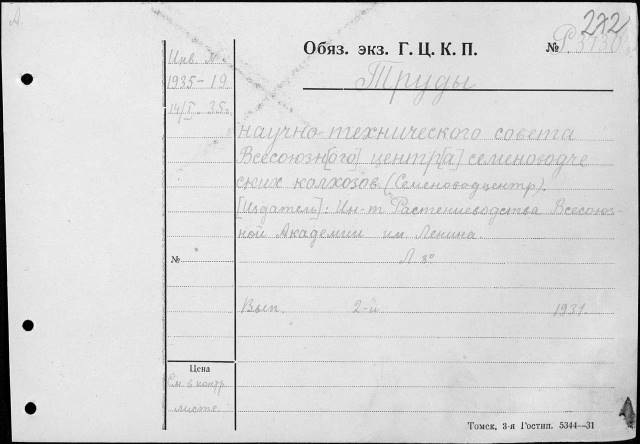 Д.
272
Обяз. экз. Г. Ц. К. П. № Р. 3730
Труды
Инв. №.
1935-19
14/I 35г.
научно-технического совета
Всесоюзн[ого] центр[а] семеноводче
ских колхозов (Семеноводцентр).
[Издатель]: Ин-т Растениеводства Всесоюз-
ной Академии им. Ленина.
№
Л 8°
Вып. 2-й 1931.
Цена
См. в контр.
листе.
Томск, 3-я Гостип. 5344—31